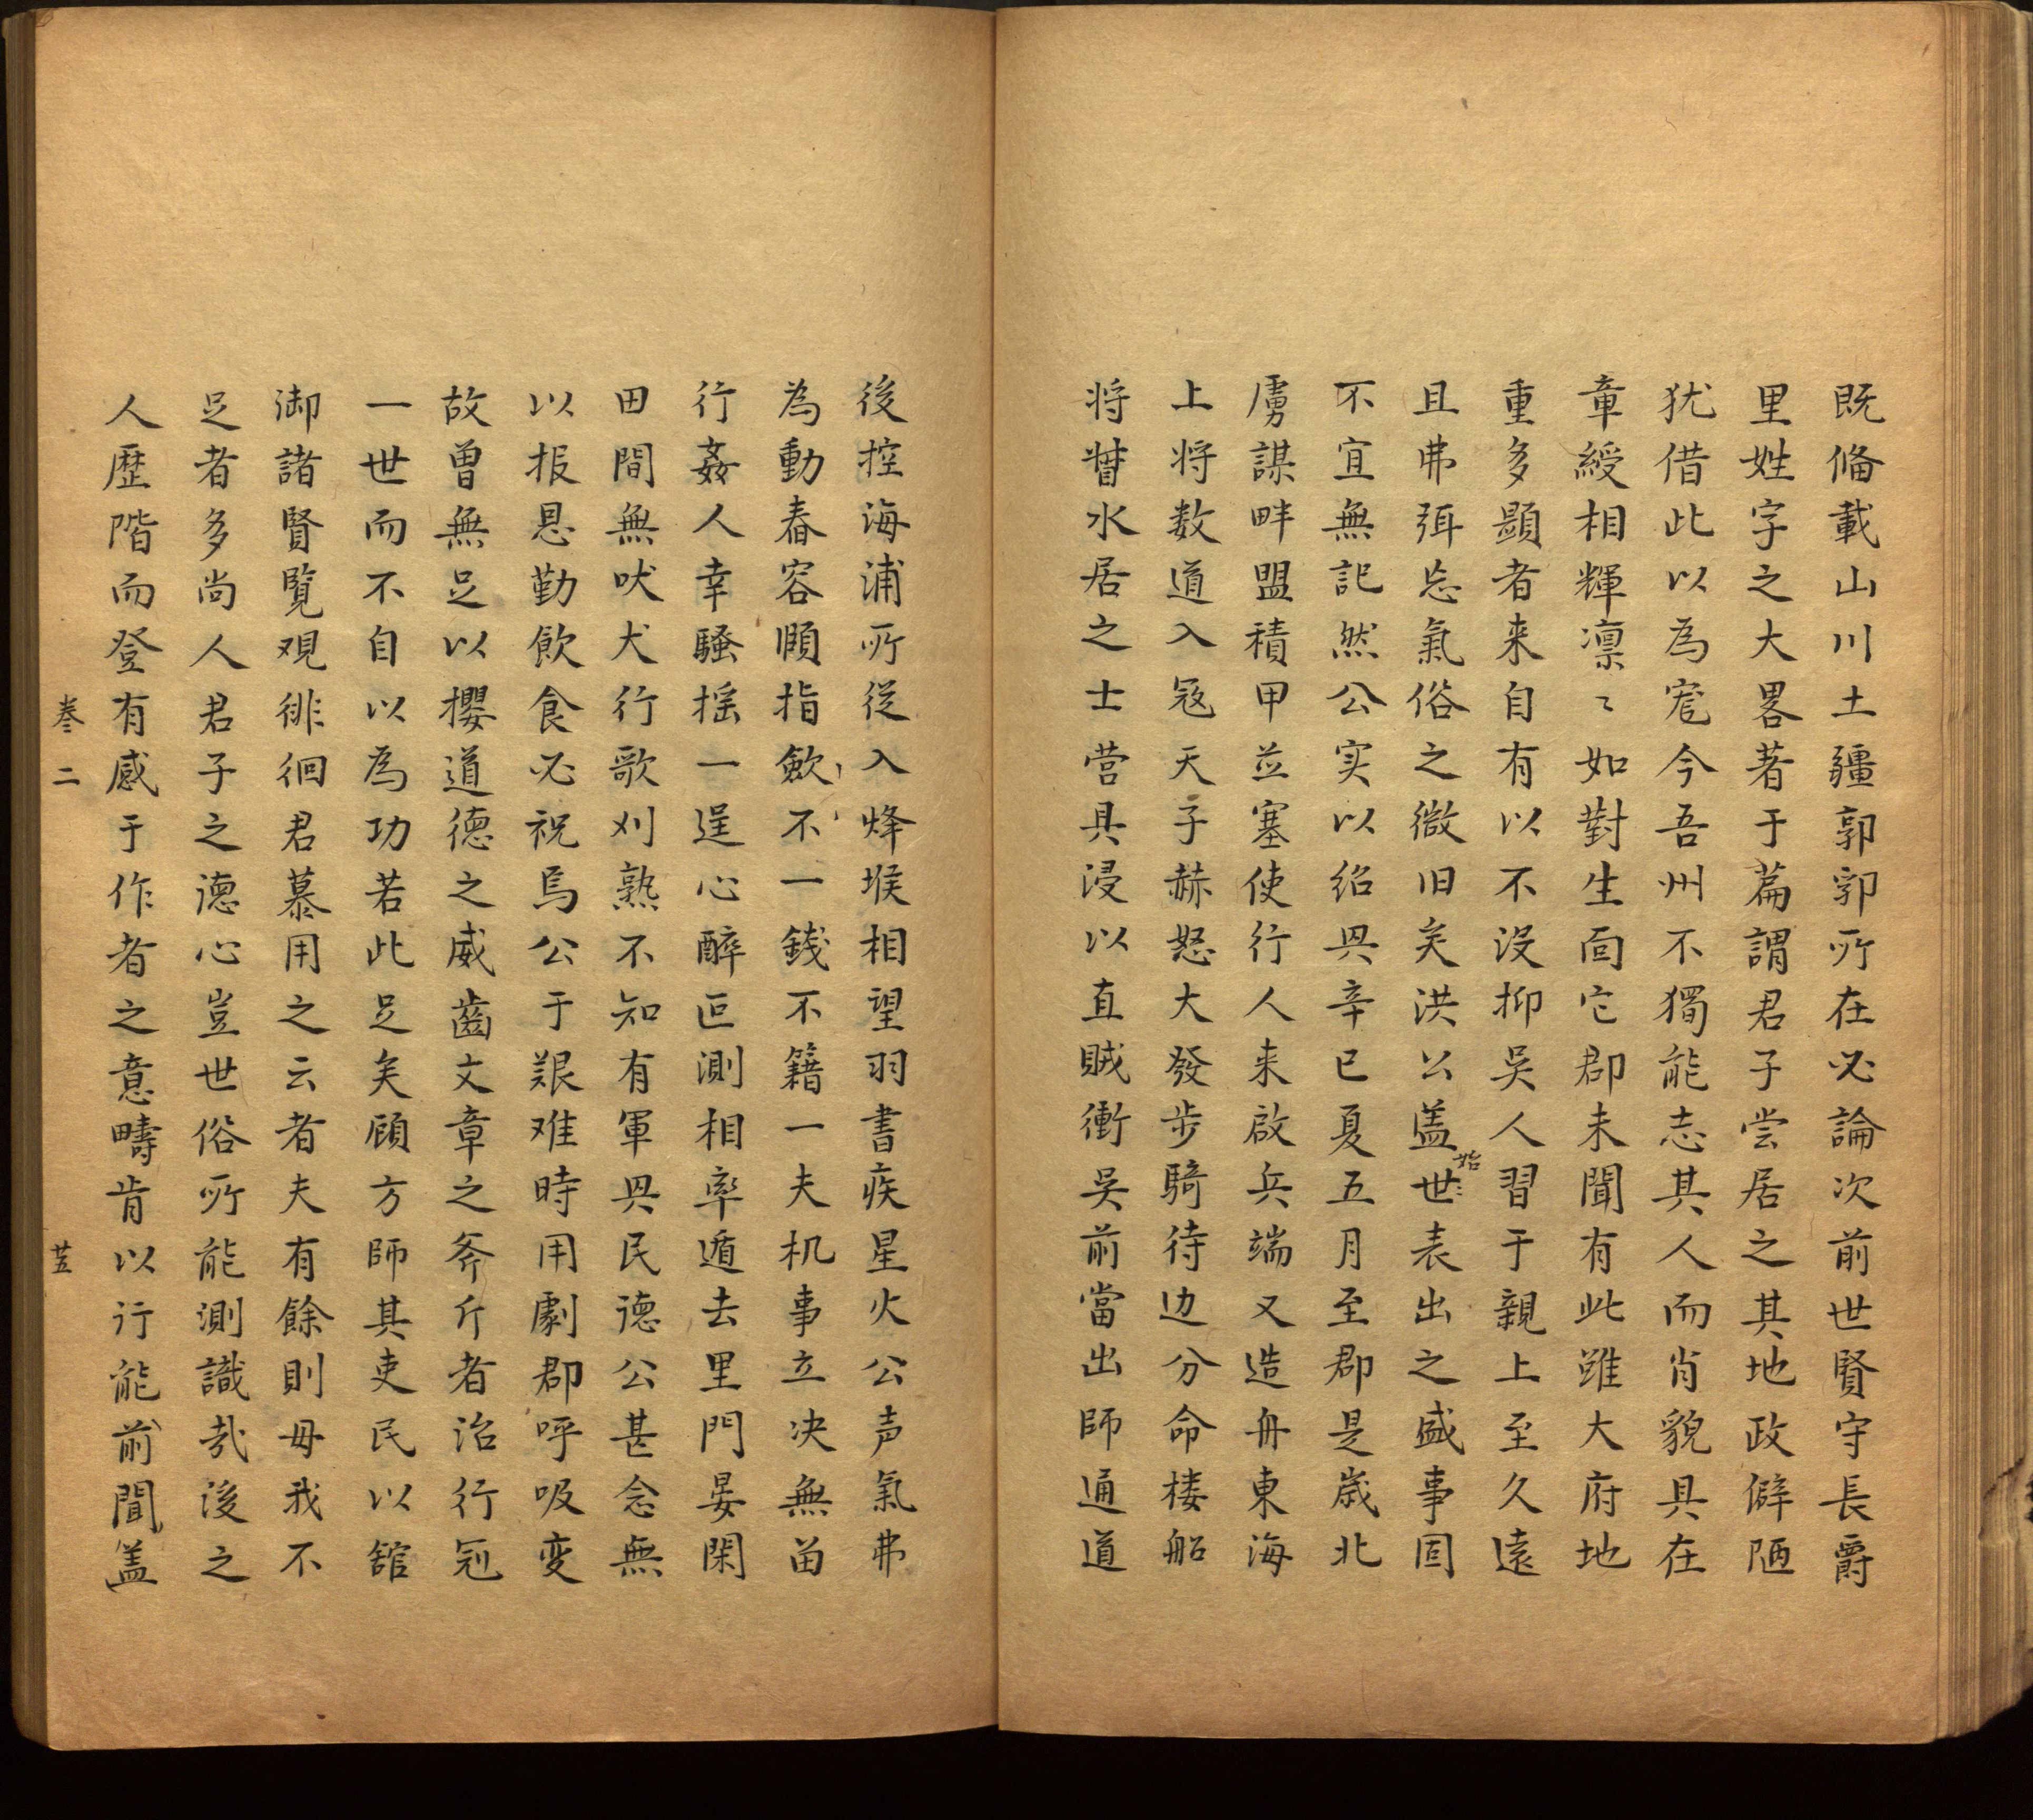 既俻載山川土疆郭郛所在必論次前世賢守長爵
里姓字之大畧著于篇謂君子尝居之其地政僻陋
犹借此以為寵今吾州不獨能志其人而肖貌具在
章綬相輝凛〻如對生面它郡未聞有此雖大府地
重多顕者来自有以不没抑吳人習于親上至久遠
且弗弭忘氣俗之微旧矣洪公盖世表出之盛事固
始
不宜無記然公实以绍興辛巳夏五月至郡是歲北
虜謀畔盟積甲並塞使行人来啟兵端又造舟東海
上将数道入冦天子赫怒大發步騎待边分命楼船
将督水居之士营具浸以直賊衝吳前當出師通道
後控海浦所從入烽堠相望羽書疾星火公声氣弗
為動春容顺指歛不一錢不籍一夫机事立决無苗
行姦人幸騷揺一逞心醉叵測相率遁去里門晏閑
田間無吠犬行歌刈熟不知有軍興民德公甚念無
以报恩勤飲食必祝焉公于艱难時用劇郡呼吸变
故曾無足以攖道德之威齒文章之斧斤者治行冠
一世而不自以為功若此足矣顧方師其吏民以舘
御諸賢覧观徘徊君慕用之云者夫有餘則毋我不
足者多尚人君子之德心豈世俗所能測識㢤後之
人歴階而登有感于作者之意疇肯以行能前聞盖
卷二
廿五